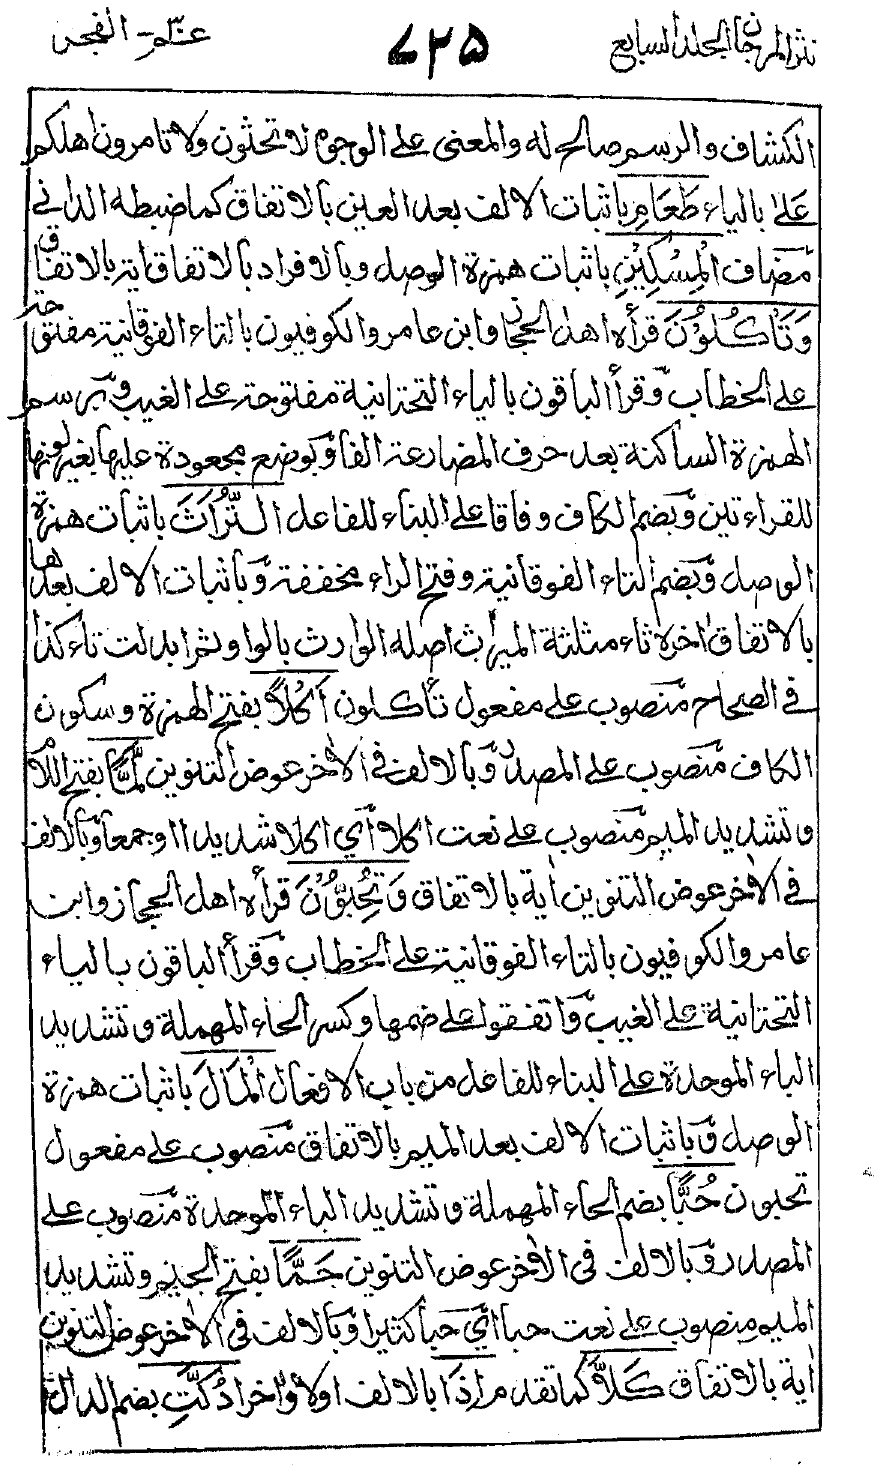 نثر المرجان الجلد السابع ٧٢٥ عمّ الفجر
الكشاف والرسم صالح له والمعنى على الوجوه لا تحثون ولا تامرون اهلكم
عَلىٰ بالياء طَعَامِ باثبات الالف بعد العين بالاتفاق كما ضبطه الداني
مضاف الْمِسْكِيْنِ باثبات همزة الوصل وبالافراد بالاتفاق اية بالاتفاق
وَتَأْكُلُوْنَ قرأه اهل الحجاز وابن عامر والكوفيون بالتاء الفوقانية مفتوحة
على الخطاب وقرأ الباقون بالياء التحتانية مفتوحة على الغيب وبرسم
الهمزة الساكنة بعد حرف المضارعة الفا وبوضع مجعودة عليها بغير لونها
للقراءتين وبضم الكاف وفاقا على البناء للفاعل التُّرَاثَ باثبات همزة
الوصل وبضم التاء الفوقانية وفتح الراء مخففة وباثبات الالف بعدها
بالاتفاق اخره ثاء مثلثة الميراث اصله الوارث بالواو ثم ابدلت تاء كذا
في الصحاح منصوب على مفعول تأكلون أَكْلًا بفتح الهمزة وسكون
الكاف منصوب على المصدر وبالالف في الاخر عوض التنوين لَّمًّا بفتح اللام
وتشديد الميم منصوب على نعت اكلا أي اكلا شديدا او جمعا وبالالف
في الاخر عوض التنوين اية بالاتفاق وَتُحِبُّوْنَ قرأه اهل الحجاز وابن
عامر والكوفيون بالتاء الفوقانية على الخطاب وقرأ الباقون بالياء
التحتانية على الغيب واتفقوا على ضمها وكسر الحاء المهملة وتشديد
الباء الموحدة على البناء للفاعل من باب الافعال الْمَالَ باثبات همزة
الوصل وباثبات الالف بعد الميم بالاتفاق منصوب على مفعول
تحبون حُبًّا بضم الحاء المهملة وتشديد الباء الموحدة منصوب على
المصدر وبالالف في الاخر عوض التنوين جَمًّا بفتح الجيم وتشديد
الميم منصوب على نعت حبا أي حبا كثيرا وبالالف في الاخر عوض التنوين
اية بالاتفاق كَلَّا كما تقدم اِذَا بالالف اولا واخرا دُكَّتِ بضم الدال